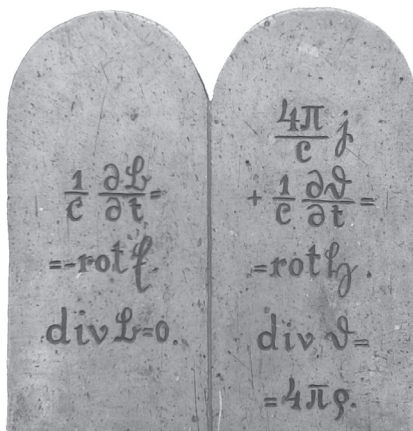 1/c ∂𝔅/∂t=
=-rot𝔈.
div𝔅=0.
4π/c 𝔧
+ 1/c ∂𝔇/∂t=
=rotℌ.
div 𝔇=
=4πρ.